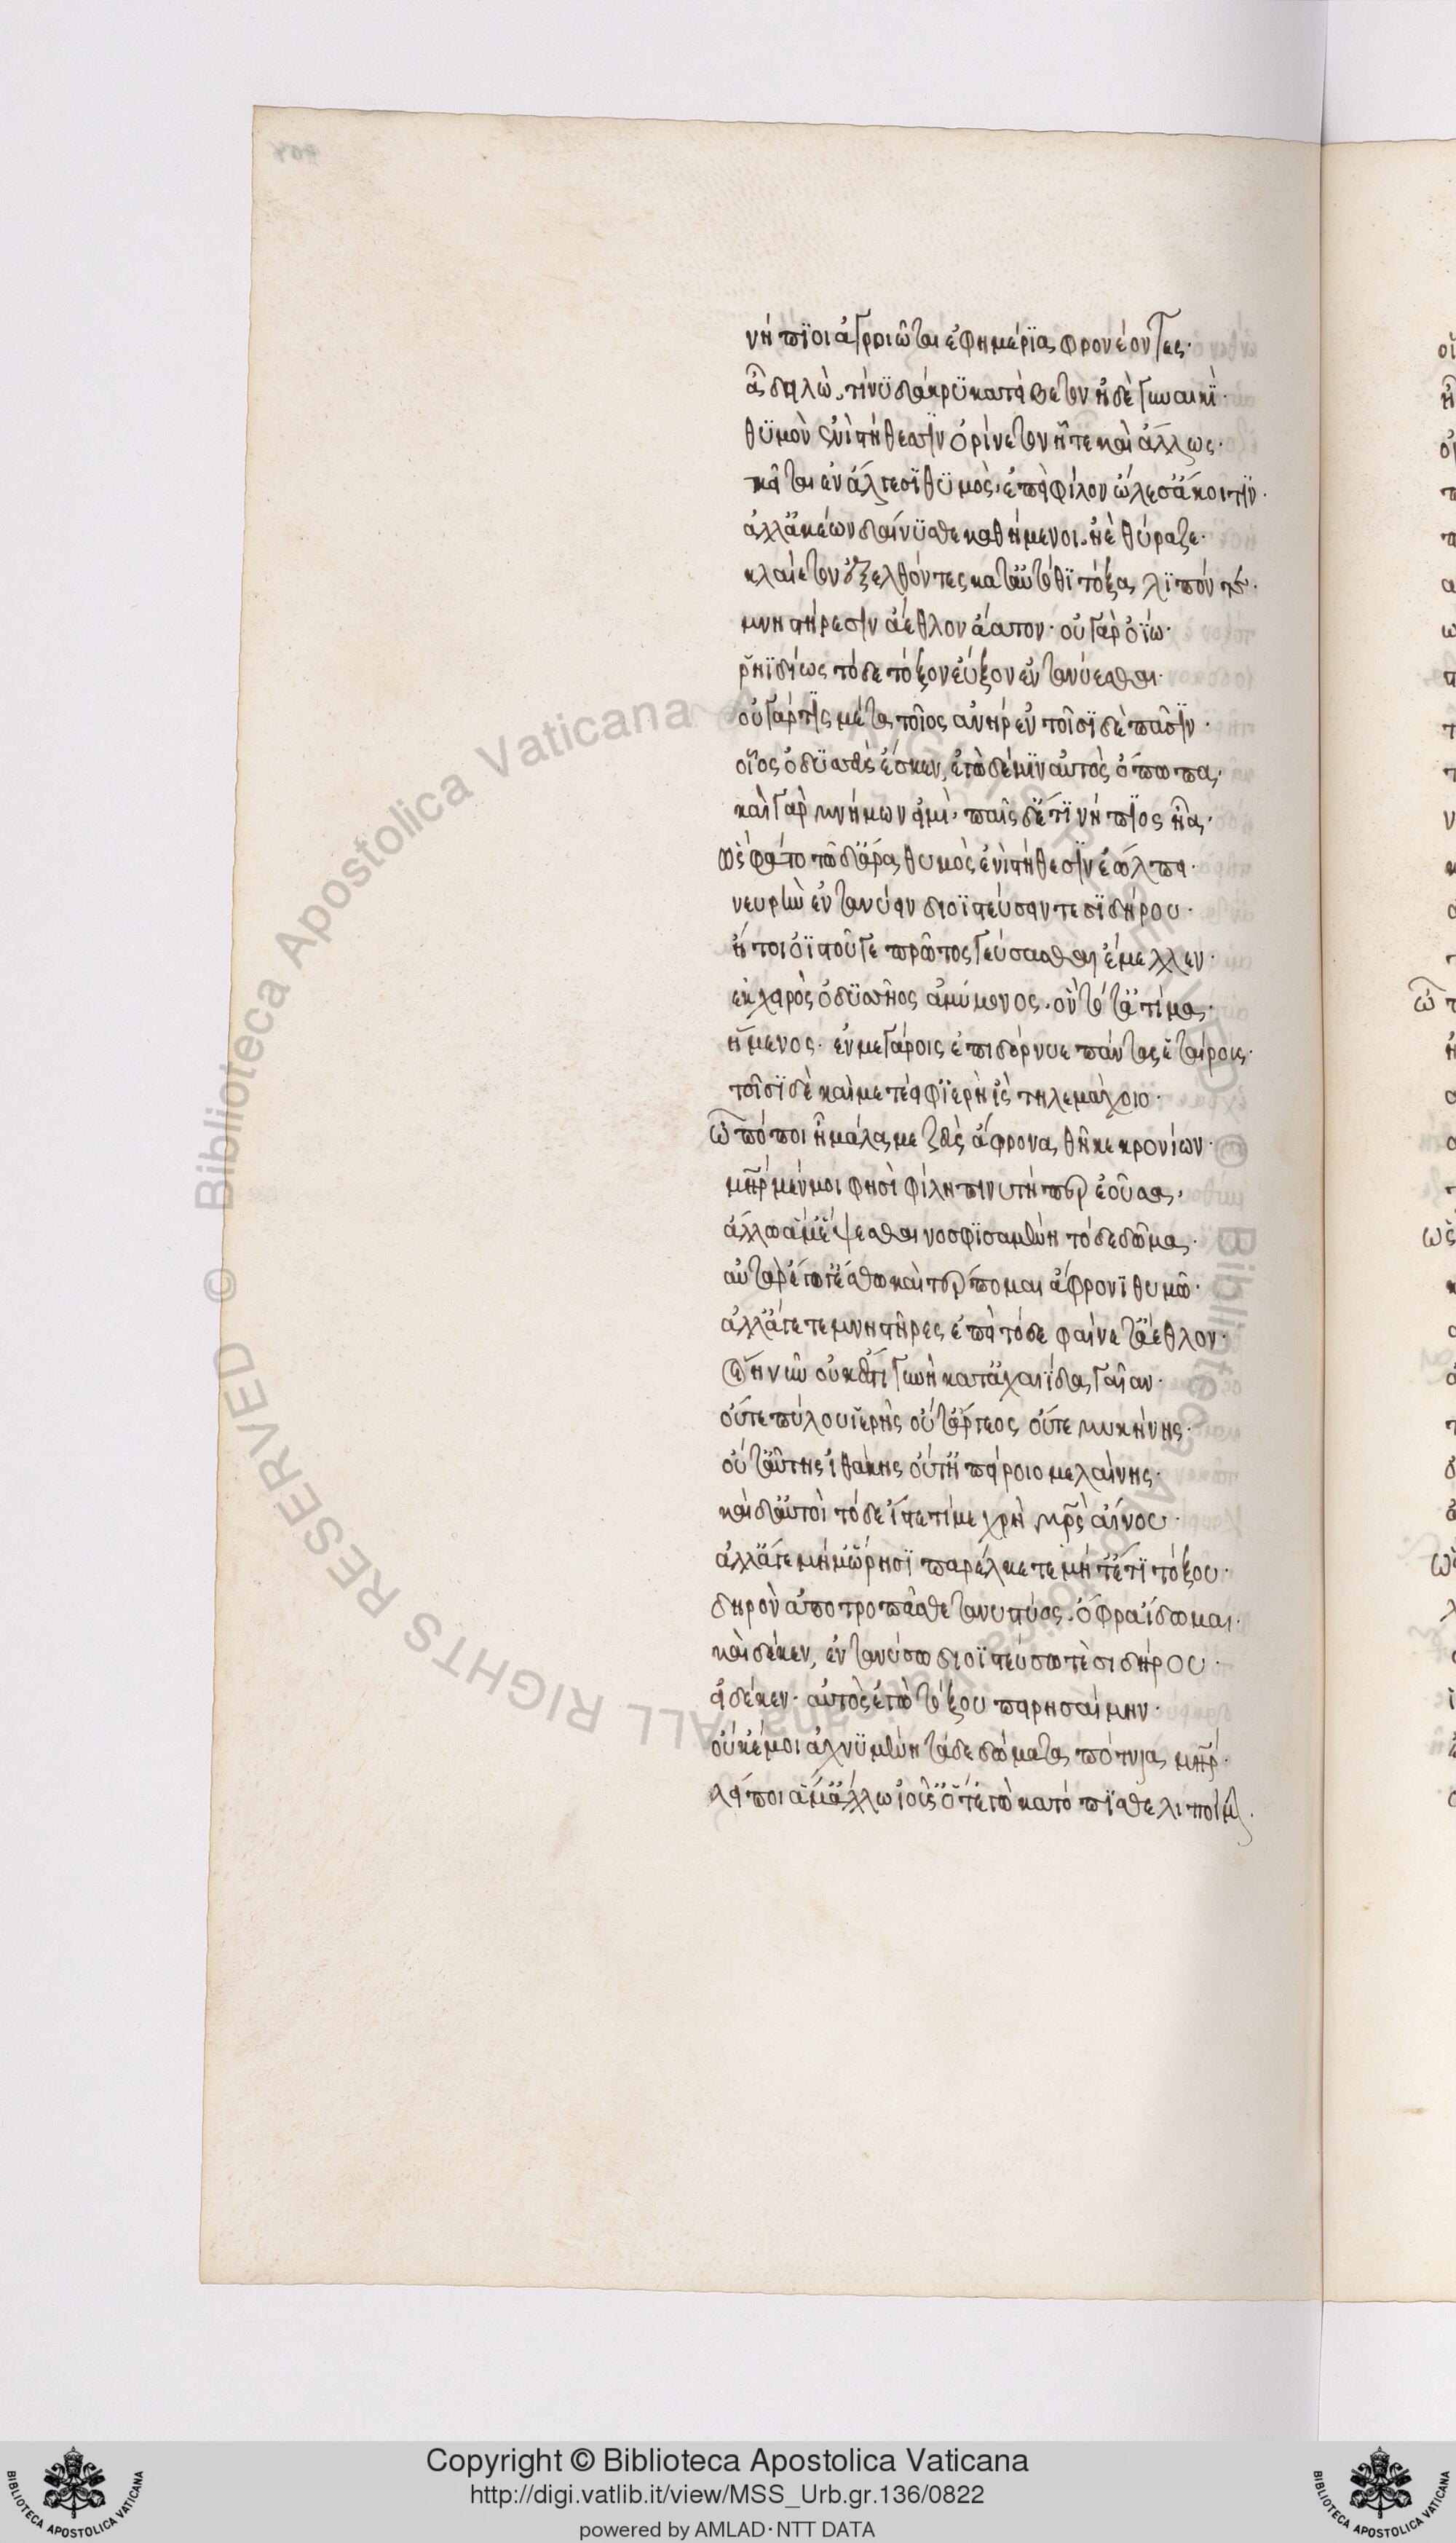 νήπϊοι ἀγροιῶται ἐφημέρϊα φρονέοντες·
ἆ δειλὼ. τί νϋ δάκρϋ κατείβετον ἠδὲ γυναικὶ·
θϋμὸν ἐνὶ στήθεσϊν ὀρίνετον ἧτε καὶ ἄλλως·
κεῖται ἐν ἄλγεσϊ θϋμὸς, ἐπεὶ φίλον ὤλεσ' ἀκοιτϊν·
ἀλλ' ἀκέων δαίνϋσθε καθήμενοι. ἠὲ θύραζε·
κλαίετον ἐξελθόντες κατ' αὐτόθϊ τόξα λϊπόντε·
μνηστήρεσϊν ἄεθλον ἀάατον· οὐ γὰρ ὀΐω·
ῥηϊδίως τόδε τόξον ἐΰξοον ἐντανύεσθαι·
οὐ γάρ τϊς μέτα τοῖος ἀνὴρ ἐν τοῖσϊδε πᾶσϊν·
οἷος ὀδϋσσεὺς ἔσκεν, ἐγὼ δέ μϊν αὐτὸς ὄπωπα,
καὶ γὰρ μνήμων εἰμὶ, παῖς δ' ἔτϊ νήπϊος ἦα·
ὣς φάτο τῶ δ' ἄρα θυμὸς ἐνὶ στήθεσϊν ἐώλπει·
νευρὴν ἐντανύειν διοϊστεύσειν τε σϊδήρου·
ἤτοι ὀϊστοῦ γε πρῶτος γεύσασθαι ἔμελλεν·
ἐκ χειρὸς ὀδϋσσῆος ἀμύμονος. ὃν τότ' ἀτίμα·
ἥμενος· ἐν μεγάροις ἐπὶ δ' ὄρνυε πάντας ἑταίρους·
τοῖσϊ δὲ καὶ μετέειφ' ϊερὴ ἲς τηλεμάχοιο·
ὢ πόποι ἦ μάλα με ζεὺς ἄφρονα θῆκε κρονίων·
μήτηρ μέν μοι φησὶ φίλη πινυτή περ ἐοῦσα,
ἄλλω ἅμ' ἕψεσθαι νοσφϊσαμένη τόδε δῶμα·
αὐτὰρ ἐγὼ γελόω καὶ τέρπομαι ἄφρονϊ θυμῶ·
ἀλλ' ἄγετε μνηστῆρες ἐπεὶ τόδε φαίνετ' ἄεθλον·
οἵη νῦν οὐκ ἔστϊ γυνὴ κατ' ἀχαιΐδα γαῖαν·
οὔτε πύλου ἱερῆς οὔτ' ἄργεος οὔτε μυκήνης·
οὔτ' αὐτῆς ἰθάκης οὔτ' ἠπείροιο μελαίνης·
καὶ δ' αὐτοὶ τόδε ἴστε τί με χρὴ μητρὸς αἴνου·
ἀλλ' ἄγε μὴ μύνῃσϊ παρέλκετε μὴ δ' ἔτϊ τόξου·
δηρὸν ἀποτρωπᾶσθε τανυστύος. ὄφρα ἴδωμαι·
καὶ δέ κεν, ἐντανύσω διοϊστεύσω τὲ σιδήρου·
εἰ δέ κεν· αὐτὸς ἐγὼ τόξου πειρησαίμην·
οὔ κέ μοι ἀχνϋμένη τάδε δώματα πότνια μήτηρ·
λείποι ἅμ' ἄλλω ἰοῦσ' ὅτ' ἐγὼ κατόπϊσθε λιποίμην·
Copyright © Biblioteca Apostolica Vaticana
http://digi.vatlib.it/view/MSS_Urb.gr.136/0822
powered by AMLAD·NTT DATA